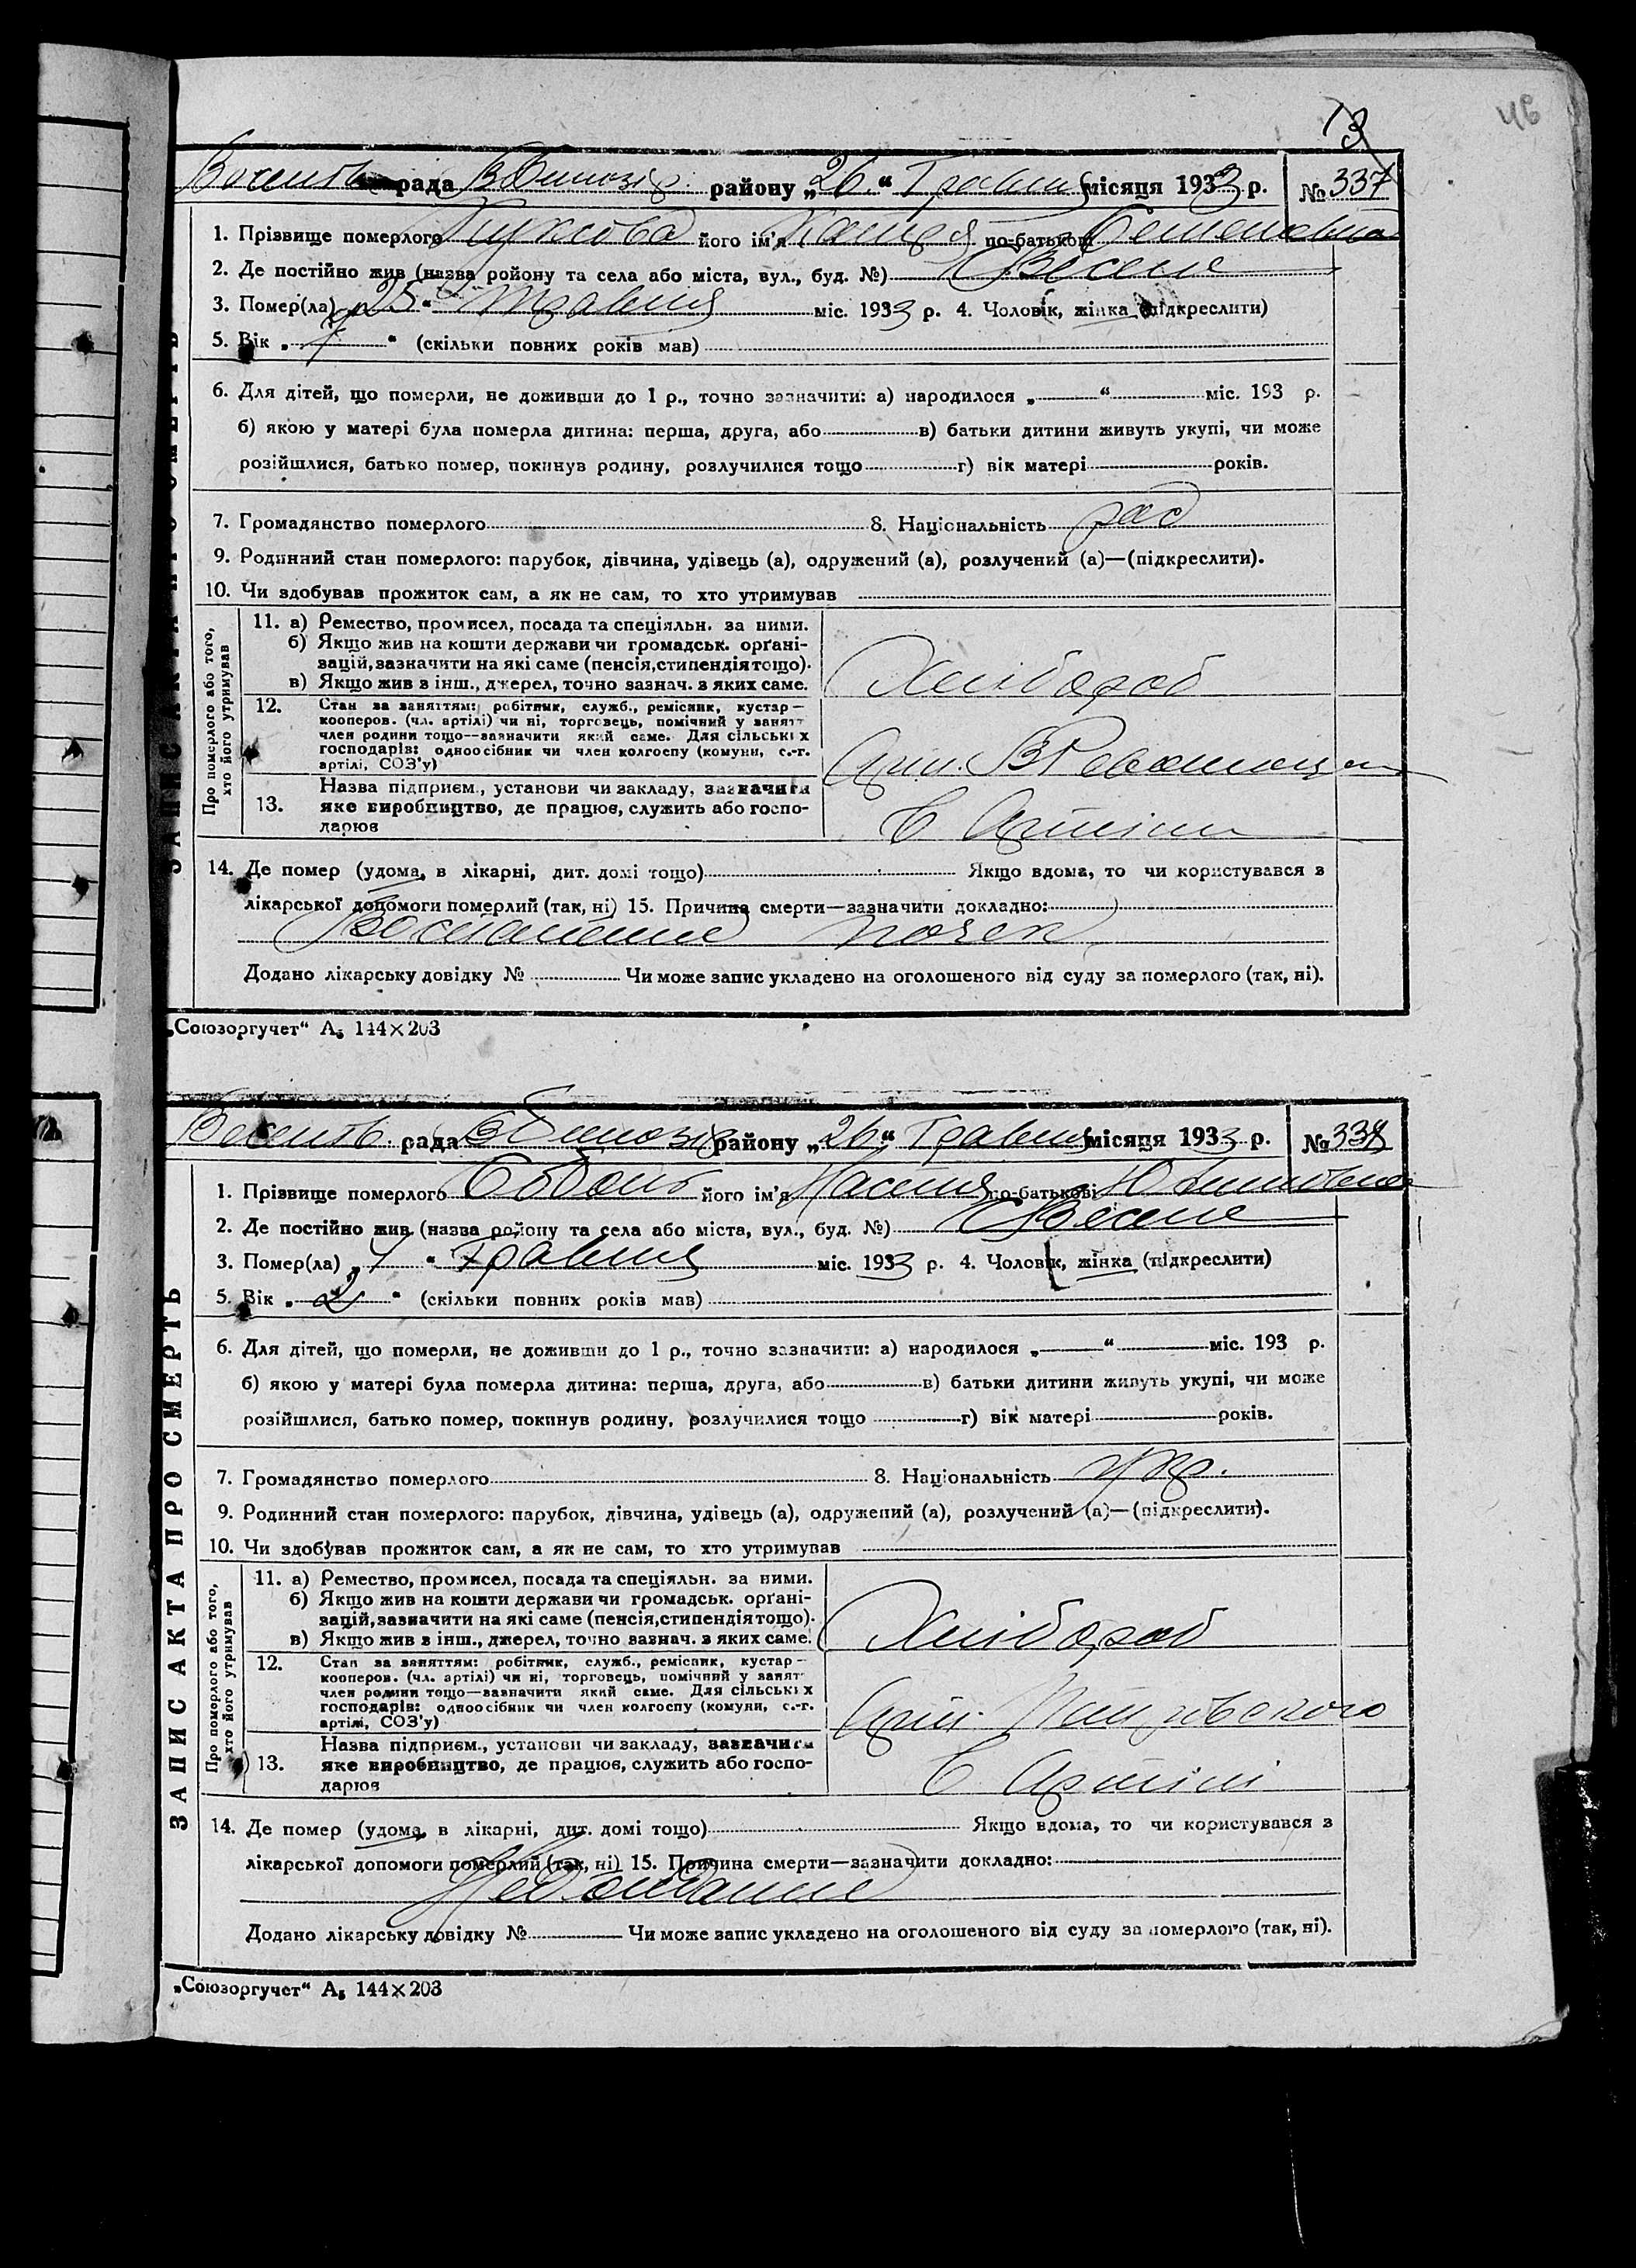 46
13
рада району „26“ Травня місяця 1933 р. № 337
1. Прізвище померлого його ім'я по-батькові
2. Де постійно жив (назва ройону та села або міста, вул., буд. №) С Веселе
3. Помер(ла) „25“ травня міс. 1933 р. 4. Чоловік, жінка (підкреслити)
5. Вік „ “ (скільки повних років мав)
6. Для дітей, що померли, не доживши до 1 р., точно зазначити: а) народилося „ “ міс. 193 р.
б) якою у матері була померла дитина: перша, друга, або в) батьки дитини живуть укупі, чи може
розійшлися, батько помер, покинув родину, розлучилися тощо г) вік матері років.
7. Громадянство померлого 8. Національність
9. Родинний стан померлого: парубок, дівчина, удівець (а), одружений (а), розлучений (а)—(підкреслити).
10. Чи здобував прожиток сам, а як не сам, то хто утримував
ЗАПИС АКТА ПРО СМЕРТЬ
Про померлого або того,
хто його утримував
11. а) Ремество, промисел, посада та спеціяльн. за ними.
б) Якщо жив на кошти держави чи громадськ. орґані-
зацій, зазначити на які саме (пенсія, стипендія тощо).
в) Якщо жив з інш., джерел, точно зазнач. з яких саме.
Хлібороб
12. Стан за заняттям: робітник, служб., ремісник, кустар—
кооперов. (чл. артілі) чи ні, торговець, помічний у занятт
член родини тощо—зазначити який саме. Для сільськіх
господарів: одноосібник чи член колгоспу (комуни, с.-г.
артілі, СОЗ'у)
Арт.
13. Назва підприєм., установи чи закладу, зазначити
яке виробництво, де працює, служить або госпо-
дарює
В Артілі
14. Де помер (удома, в лікарні, дит. домі тощо) Якщо вдома, то чи користувався з
лікарської допомоги померлий (так, ні) 15. Причина смерти—зазначити докладно:
Воспаление почек
Додано лікарську довідку № Чи може запис укладено на оголошеного від суду за померлого (так, ні).
„Союзоргучет“ А₅ 144×203
рада району „26“ Травня місяця 1933 р. № 338
1. Прізвище померлого його ім'я Настя по-батькові
2. Де постійно жив (назва ройону та села або міста, вул., буд. №) С Веселе
3. Помер(ла) „1“ Травня міс. 1933 р. 4. Чоловік, жінка (підкреслити)
5. Вік „2“ (скільки повних років мав)
6. Для дітей, що померли, не доживши до 1 р., точно зазначити: а) народилося „ “ міс. 193 р.
б) якою у матері була померла дитина: перша, друга, або в) батьки дитини живуть укупі, чи може
розійшлися, батько помер, покинув родину, розлучилися тощо г) вік матері років.
7. Громадянство померлого 8. Національність укр.
9. Родинний стан померлого: парубок, дівчина, удівець (а), одружений (а), розлучений (а)—(підкреслити).
10. Чи здобував прожиток сам, а як не сам, то хто утримував
ЗАПИС АКТА ПРО СМЕРТЬ
Про померлого або того,
хто його утримував
11. а) Ремество, промисел, посада та спеціяльн. за ними.
б) Якщо жив на кошти держави чи громадськ. орґані-
зацій, зазначити на які саме (пенсія, стипендія тощо).
в) Якщо жив з інш., джерел, точно зазнач. з яких саме.
Хлібороб
12. Стан за заняттям: робітник, служб., ремісник, кустар—
кооперов. (чл. артілі) чи ні, торговець, помічний у занят
член родини тощо—зазначити який саме. Для сільськіх
господарів: одноосібник чи член колгоспу (комуни, с.-г.
артілі, СОЗ'у)
Арт. Петровского
13. Назва підприєм., установи чи закладу, зазначити
яке виробництво, де працює, служить або госпо-
дарює
В Артілі
14. Де помер (удома, в лікарні, дит. домі тощо) Якщо вдома, то чи користувався з
лікарської допомоги померлий (так, ні) 15. Причина смерти—зазначити докладно:
Недоїдание
Додано лікарську довідку № Чи може запис укладено на оголошеного від суду за померлого (так, ні).
„Союзоргучет“ А₅ 144×203